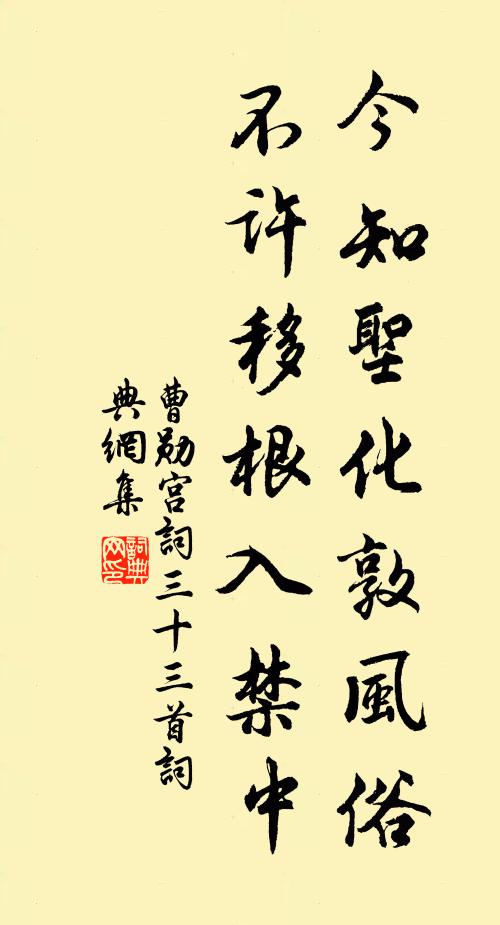 今知聖化敦風俗
不許移根入禁中
曹勛宮詞三十三首詞
典網集
詞典网印